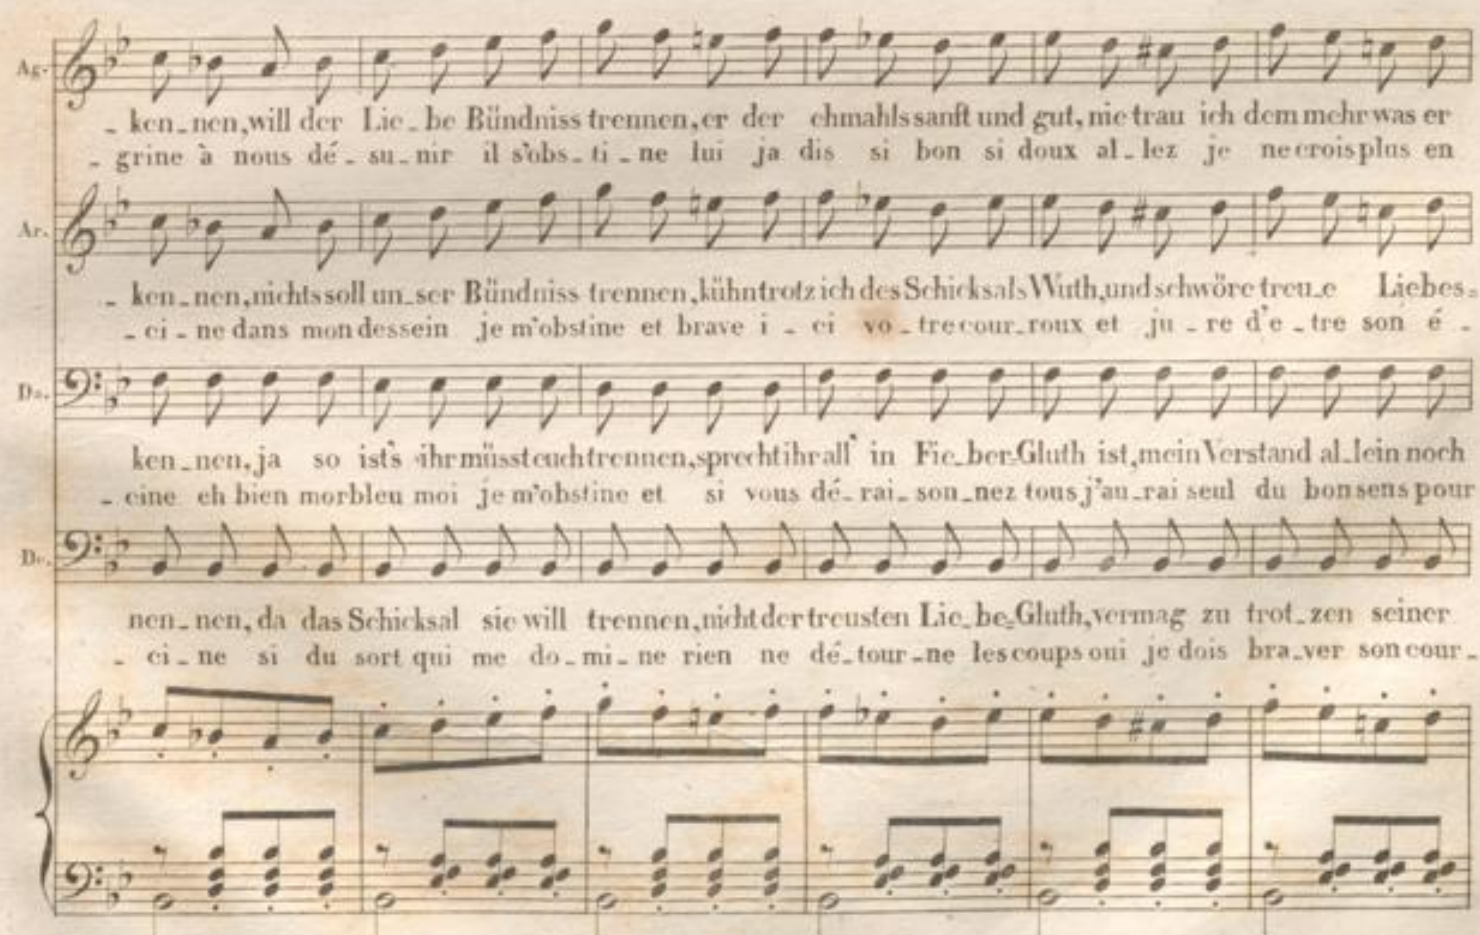 Ag.
- ken-nen, will der Lie-be Bündniss trennen, er der ehmahls sanft und gut, nie trau ich dem mehr was er
- grine à nous dé-su-nir il s'obs-ti-ne lui ja dis si bon si doux al-lez je ne crois plus en
Ar.
- ken-nen, nichts soll un-ser Bündniss trennen, kühn trotz ich des Schicksals Wuth, und schwöre treu-e Liebes=
- ci-ne dans mon dessein je m'obstine et brave i-ci vo-tre cour-roux et ju-re d'e-tre son é-
ken-nen, ja so ist's ihr müsst euch trennen, sprecht ihr all' in Fie-ber=Gluth ist, mein Verstand al-lein noch
- cine eh bien morbleu moi je m'obstine et si vous dé-rai-son-nez tous j'au-rai seul du bon sens pour
nen-nen, da das Schicksal sie will trennen, nicht der treusten Lie-be=Gluth, vermag zu trot-zen seiner
- ci-ne si du sort qui me do-mi-ne rien ne dé-tour-ne les coups oui je dois bra-ver son cour-